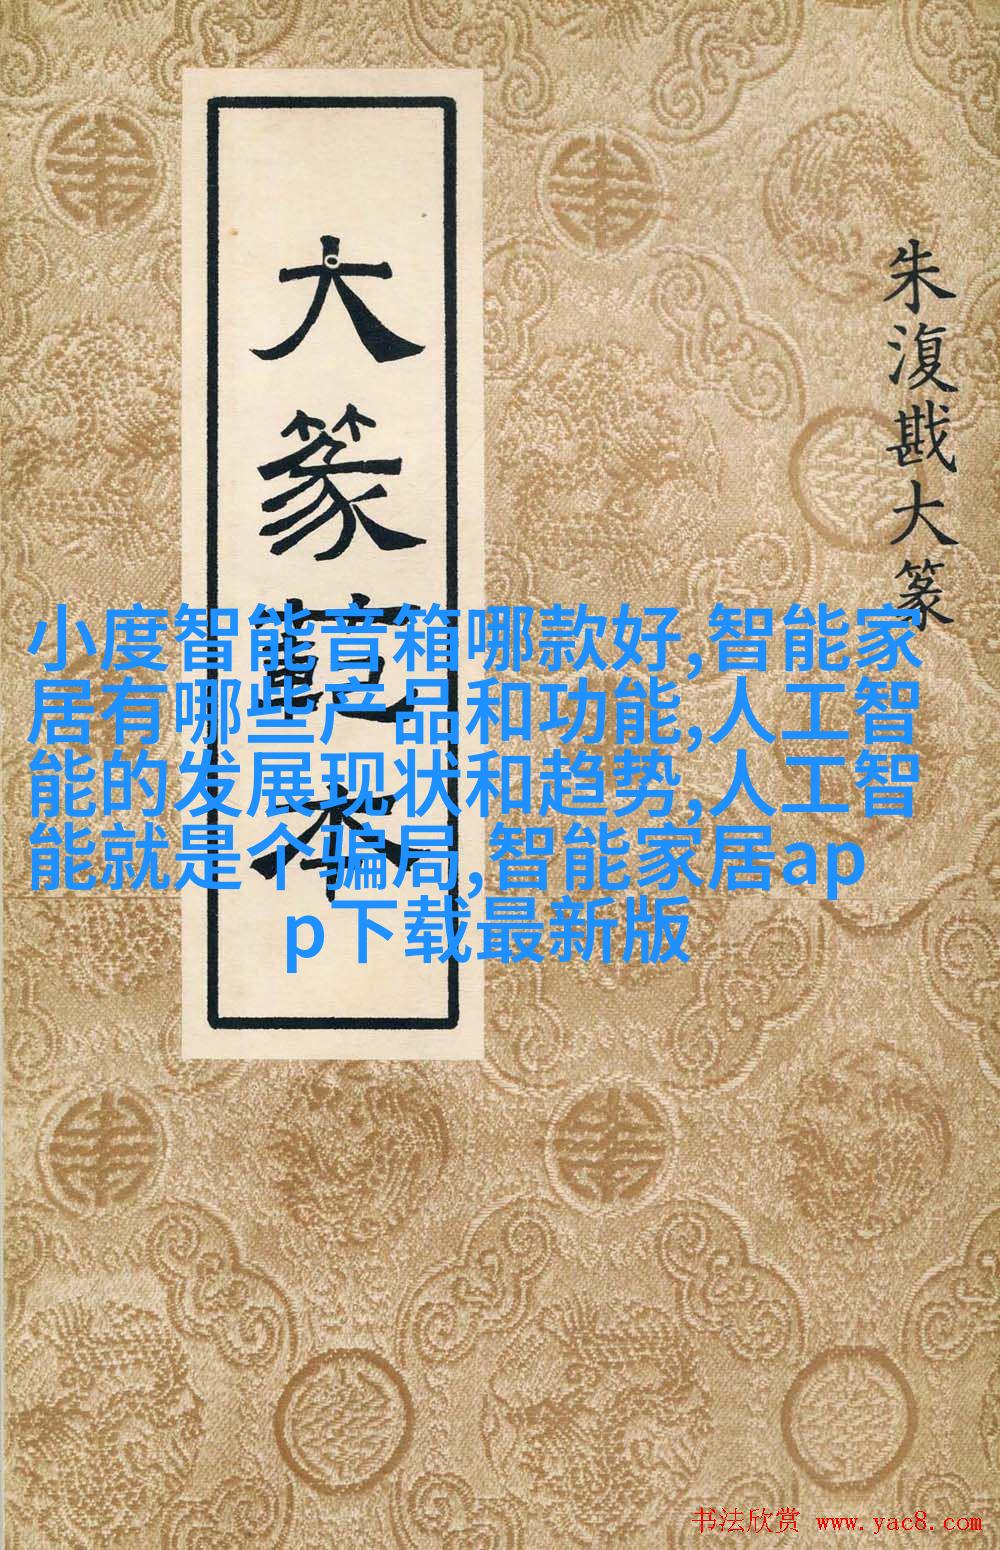 朱復戡大篆
大篆範本
小度智能音箱哪款好,智能家
居有哪些产品和功能,人工智
能的发展现状和趋势,人工智
能就是个骗局,智能家居ap
p下载最新版
书法欣赏 www.yac8.com